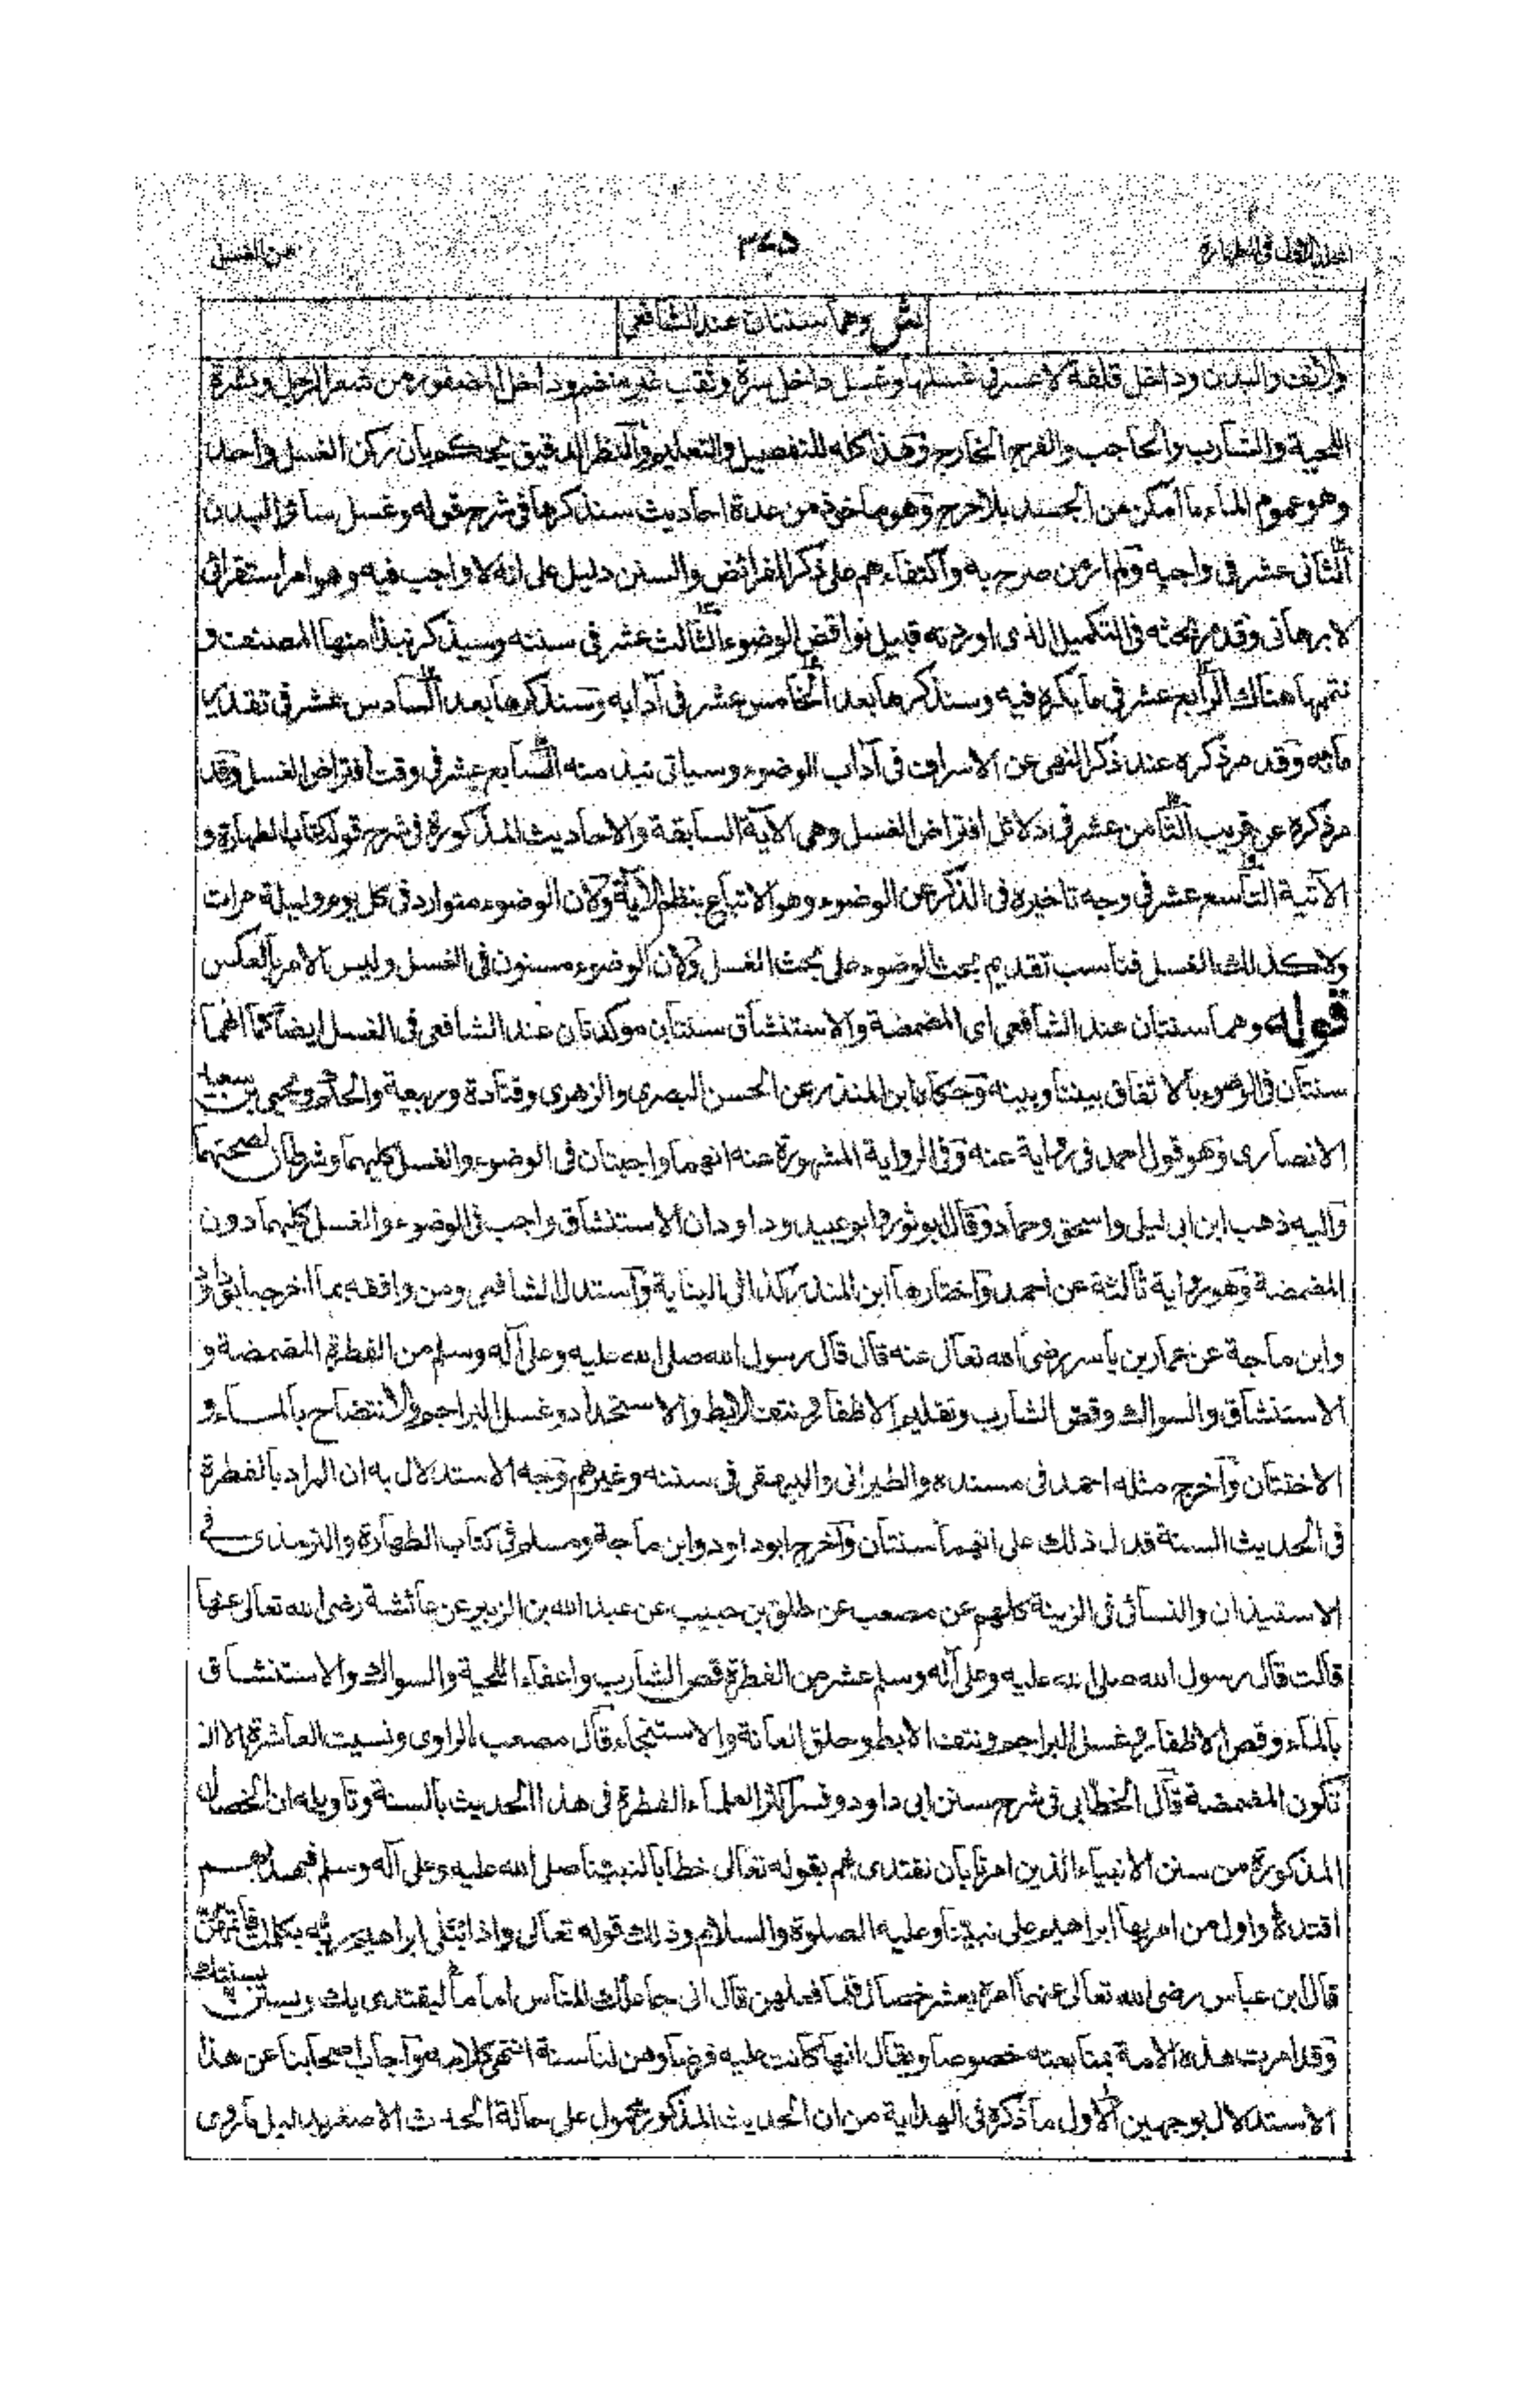 المجلد الاول فى الطهارة
٣٤٥
من الغسل
ش وهما سنتان عند الشافعى
والانف والبدن وداخل قلفة لا عسر فى غسلها وغسل داخل سرة وثقب غير منضم وداخل المضفور من شعر الرجل وبشرة
اللحية والشارب والحاجب والفرج الخارج وهذا كله للتفصيل والتعليم والنظر الدقيق يحكم بان ركن الغسل واحد
وهو عموم الماء ما امكن من الجسد بلا حرج وهو ماخوذ من عدة احاديث سنذكرها فى شرح قوله وغسل سائر البدن
الثانى عشر فى واجبه ولم ار من صرح به واكتفاءهم على ذكر الفرائض والسنن دليل على انه لا واجب فيه وهو امر استقرائى
لا برهانى وقد مر بحثه فى التكميل الذى اوردته قبيل نواقض الوضوء الثالث عشر فى سننه وسيذكر نبذا منها المصنف و
نتمها هناك الرابع عشر فى ما يكره فيه وسنذكرها بعد الخامس عشر فى آدابه وسنذكرها بعد السادس عشر فى تقدير
مائه وقد مر ذكره عند ذكر النهى عن الاسراف فى آداب الوضوء وسياتى نبذ منه السابع عشر فى وقت افتراض الغسل وقد
مر ذكره عن قريب الثامن عشر فى دلائل افتراض الغسل وهى الآية السابقة والاحاديث المذكورة فى شرح قوله كتاب الطهارة و
الآتية التاسع عشر فى وجه تاخيره فى الذكر عن الوضوء وهو الاتباع بنظم الآية ولان الوضوء متوارد فى كل يوم وليلة مرات
ولا كذلك الغسل فناسب تقديم بحث الوضوء على بحث الغسل ولان الوضوء مسنون فى الغسل وليس الامر بالعكس
قوله وهما سنتان عند الشافعى اى المضمضة والاستنشاق سنتان موكدتان عند الشافعى فى الغسل ايضا كما انهما
سنتان فى الوضوء بالاتفاق بيننا وبينه وحكاه ابن المنذر عن الحسن البصرى والزهرى وقتادة وربيعة والحكم ويحيى بن سعيد
الانصارى وهو قول احمد فى رواية عنه وفى الرواية المشهورة عنه انهما واجبتان فى الوضوء والغسل كليهما وشرطان لصحتهما
واليه ذهب ابن ابى ليلى واسحق وحماد وقال ابو ثور وابو عبيد وداود ان الاستنشاق واجب فى الوضوء والغسل كليهما دون
المضمضة وهو رواية ثالثة عن احمد واختارها ابن المنذر كذا فى البناية واستدل الشافعى ومن وافقه بما اخرجه ابو داود
وابن ماجة عن عمار بن ياسر رضى الله تعالى عنه قال قال رسول الله صلى الله عليه وعلى آله وسلم من الفطرة المضمضة و
الاستنشاق والسواك وقص الشارب وتقليم الاظفار ونتف الابط والاستحداد وغسل البراجم والانتضاح بالماء و
الاختتان واخرج مثله احمد فى مسنده والطبرانى والبيهقى فى سننه وغيرهم وجه الاستدلال به ان المراد بالفطرة
فى الحديث السنة فدل ذلك على انهما سنتان واخرج ابو داود وابن ماجة ومسلم فى كتاب الطهارة والترمذى فى
الاستيذان والنسائى فى الزينة كلهم عن مصعب عن طلق بن حبيب عن عبد الله بن الزبير عن عائشة رضى الله تعالى عنها
قالت قال رسول الله صلى الله عليه وعلى آله وسلم عشر من الفطرة قص الشارب واعفاء اللحية والسواك والاستنشاق
بالماء وقص الاظفار وغسل البراجم ونتف الابط وحلق العانة والاستنجاء قال مصعب الراوى ونسيت العاشرة الا ان
تكون المضمضة قال الخطابى فى شرح سنن ابى داود وفسر اكثر العلماء الفطرة فى هذا الحديث بالسنة وتاويله ان الخصال
المذكورة من سنن الانبياء الذين امرنا بان نقتدى بهم بقوله تعالى خطابا لنبينا صلى الله عليه وعلى آله وسلم فبهداهم
اقتده واول من امر بها ابراهيم على نبينا وعليه الصلوة والسلام وذلك قوله تعالى واذ ابتلى ابراهيم ربه بكلمات فاتمهن
قال ابن عباس رضى الله تعالى عنهما امره بعشر خصال فلما فعلهن قال انى جاعلك للناس اماما ليقتدى بك ويستن بسنتك
وقد امرت هذه الامة بمتابعته خصوصا ويقال انها كانت عليه فرضا وهن لنا سنة انتهى كلامه واجاب اصحابنا عن هذا
الاستدلال بوجهين الاول ما ذكره فى الهداية من ان الحديث المذكور محمول على حالة الحدث الاصغر بدليل ما روى